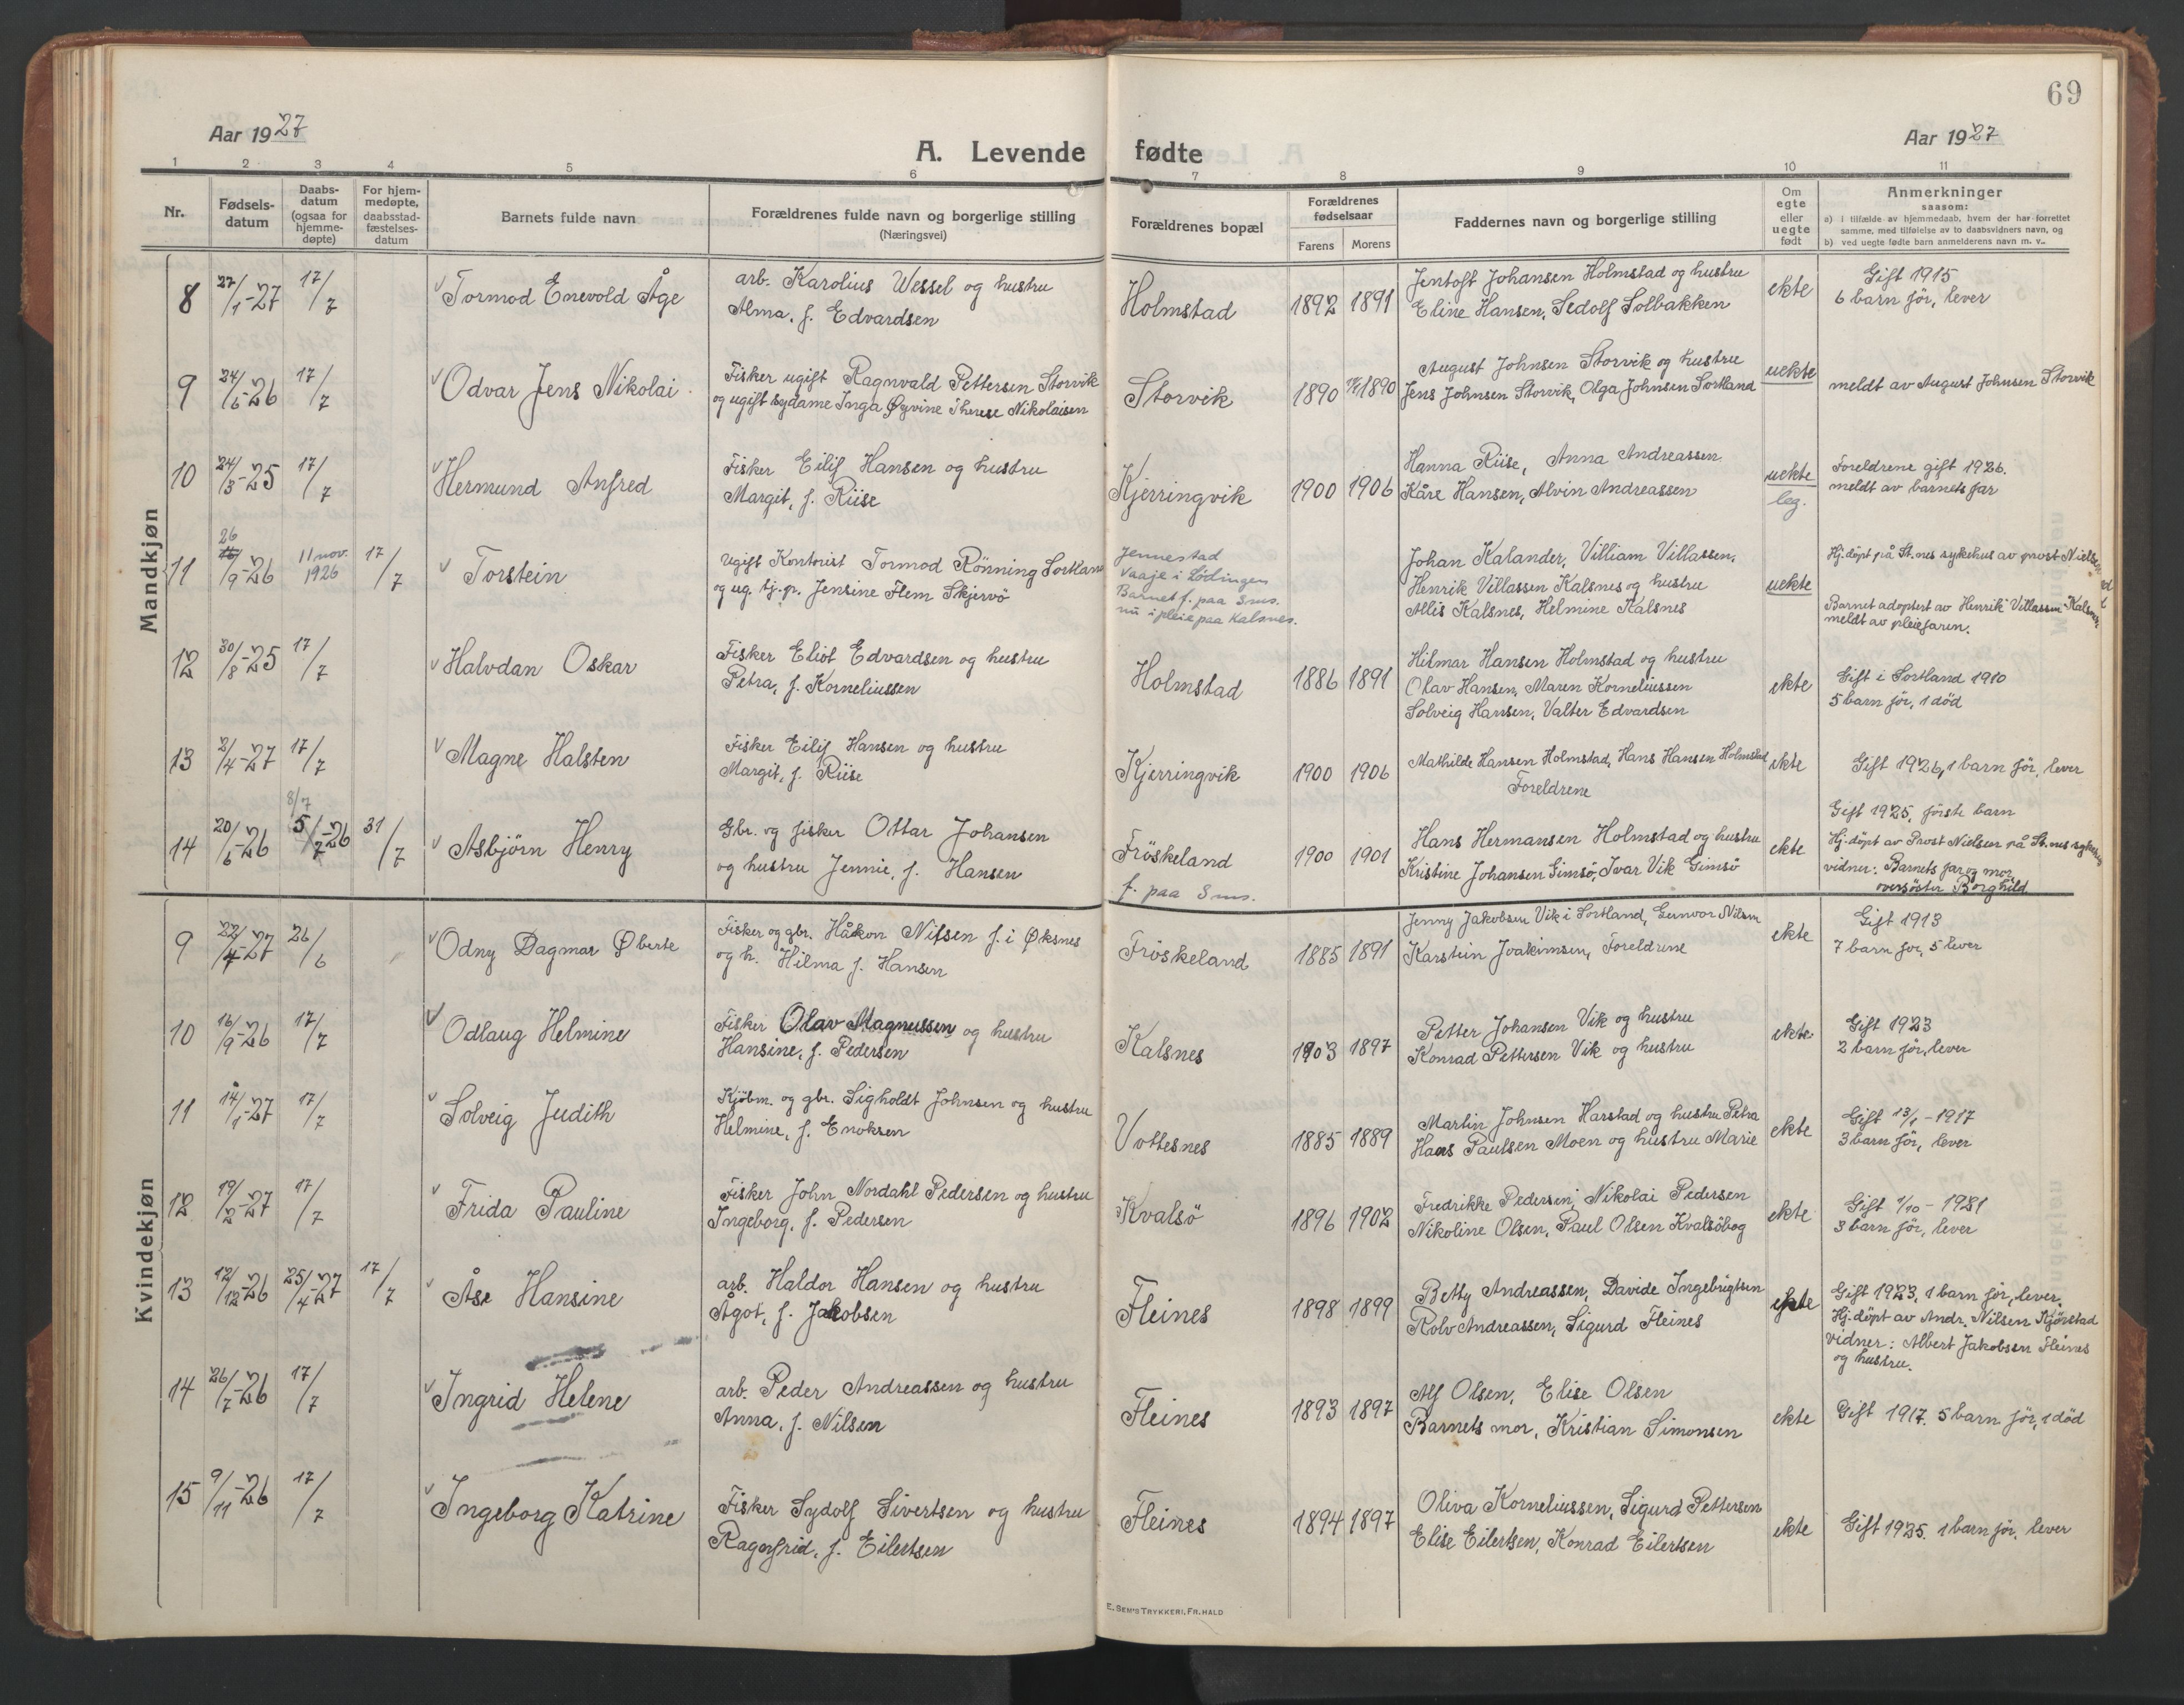 69
Aar 1927
A. Levende fødte
Aar 1927
1 2 3 4 5 6 7 8 9 10 11
Nr.
Fødsels-
datum
Daabs-
datum
(ogsaa for
hjemme-
døpte)
For hjem-
medøpte,
daabsstad-
fæstelses-
datum
Barnets fulde navn
Forældrenes fulde navn og borgerlige stilling
(Næringsvei)
Forældrenes bopæl
Forældrenes
fødselsaar
Farens Morens
Faddernes navn og borgerlige stilling
Om
egte
eller
uegte
født
Anmerkninger
saasom:
a) i tilfælde av hjemmedaab, hvem der har forrettet
samme, med tilføielse av to daabsvidners navn, og
b) ved uegte fødte barn anmelderens navn m. v..
Mandkjøn
8 27/1-27 17/7 Tormod Enevold Åge
arb. Karolius Wessel og hustru
Alma, f. Edvardsen
Holmstad 1892 1891
Jentoft Johansen Holmstad og hustru
Eline Hansen, Sedolf Solbakken
ekte
Gift 1915
6 barn för, lever
9 24/6-26 17/7 Odvar Jens Nikolai
Fisker ugift Ragnvald Pettersen Storvik
og ugift sydame Inga Øyvine Therese Nikolaisen
Storvik 1890 1890
August Johnsen Storvik og hustru
Jens Johnsen Storvik, Olga Johnsen Sortland
uekte
meldt av August Johnsen Storvik
10 24/3-25 17/7 Hermund Anfred
Fisker Eilif Hansen og hustru
Margit, f. Riise
Kjerringvik 1900 1906
Hanna Riise, Anna Andreassen
Kåre Hansen, Alvin Andreassen
uekte
leg.
Foreldrene gift 1926.
meldt av barnets far
11 26/9-26 11 nov. 1926 17/7 Torstein
Ugift Kontorist Tormod Rönning Sortland
og ug. tj.p. Jensine Flem Skjervö
Jennestad
Vaaje i Lödingen
Barnet f. paa Sms.
nu i pleie paa Kalsnes.
Johan Kalander, Villiam Villassen,
Henrik Villassen Kalsnes og hustru
Allis Kalsnes, Helmine Kalsnes
uekte
Hj.döpt på St.nes sykehus av prost Nielsen
Barnet adoptert av Henrik Villassen Kalsnes
meldt av pleiefaren.
12 30/8-25 17/7 Halvdan Oskar
Fisker Eliot Edvardsen og hustru
Petra, f. Korneliussen
Holmstad 1886 1891
Hilmar Hansen Holmstad og hustru
Olav Hansen, Maren Korneliussen
Solveig Hansen, Valter Edvardsen
ekte
Gift i Sortland 1910
5 barn för, 1 död
13 2/4-27 17/7 Magne Halsten
Fisker Eilif Hansen og hustru
Margit, f. Riise
Kjerringvik 1900 1906
Mathilde Hansen Holmstad, Hans Hansen Holmstad
Foreldrene
ekte
Gift 1926, 1 barn för, lever
14 20/6-26 8/7 5/7-26 31/7 Asbjörn Henry
Gbr. og fisker Ottar Johansen
og hustru Jennie, f. Hansen
Fröskeland
f. paa Sms.
1900 1901
Hans Hermansen Holmstad og hustru
Kristine Johansen Gimsö, Ivar Vik Gimsö
ekte
Gift 1925, förste barn
Hj.döpt av Prost Nielsen på St.nes sykehus
vidner: Barnets far og mor
oversöster Borghild
Kvindekjøn
9 22/4-27 26/6 Odny Dagmar Øberte
Fisker og gbr. Håkon Nilsen f. i Øksnes
og h. Hilma f. Hansen
Fröskeland 1885 1891
Jenny Jakobsen Vik i Sortland, Gunvor Nilsen
Karstein Joakimsen, Foreldrene
ekte
Gift 1913
7 barn för, 5 lever
10 16/9-26 17/7 Odlaug Helmine
Fisker Olav Magnussen og hustru
Hansine, f. Pedersen
Kalsnes 1903 1897
Petter Johansen Vik og hustru
Konrad Pettersen Vik og hustru
ekte
Gift 1923
2 barn för, lever
11 14/1-27 17/7 Solveig Judith
Kjöbm. og gbr. Sigholdt Johnsen og hustru
Helmine, f. Enoksen
Vottesnes 1885 1889
Martin Johnsen Harstad og hustru Petra
Hans Paulsen Moen og hustru Marie
ekte
Gift 13/1-1917
3 barn för, lever
12 19/2-27 17/7 Frida Pauline
Fisker John Nordahl Pedersen og hustru
Ingeborg, f. Pedersen
Kvalsö 1896 1902
Fredrikke Pedersen, Nikolai Pedersen
Nikoline Olsen, Paul Olsen Kvalsöbog
ekte
Gift 1/10-1921
3 barn för, lever
13 12/12-26 25/4-27 17/7 Åse Hansine
arb. Haldor Hansen og hustru
Ågot, f. Jakobsen
Fleines 1898 1899
Betty Andreassen, Davide Ingebrigtsen
Rolv Andreassen, Sigurd Fleines
ekte
Gift 1923, 1 barn för, lever.
Hj.döpt av Andr. Nilsen Kjörstad
vidner: Albert Jakobsen Fleines
og hustru.
14 26/7-26 17/7 Ingrid Helene
arb. Peder Andreassen og hustru
Anna, f. Nilsen
Fleines 1893 1897
Alf Olsen, Elise Olsen
Barnets mor, Kristian Simonsen
ekte
Gift 1917. 5 barn för, 1 död
15 9/11-26 17/7 Ingeborg Katrine
Fisker Sydolf Sivertsen og hustru
Ragnfrid, f. Eilertsen
Fleines 1894 1897
Oliva Korneliussen, Sigurd Pettersen
Elise Eilertsen, Konrad Eilertsen
ekte
Gift 1925. 1 barn för, lever
E. Sem's Trykkeri, Fr. Hald